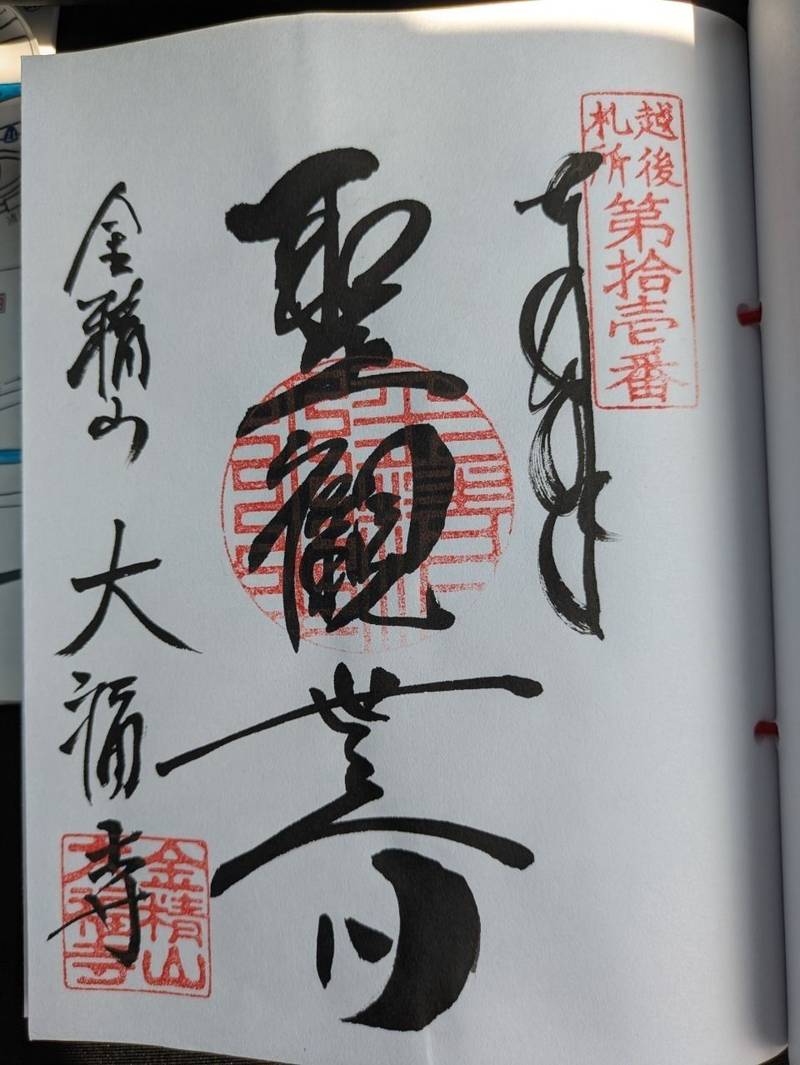 越後
札所
第拾壱番
奉拝
聖観世音
金精山 大福寺
金精山
大福寺